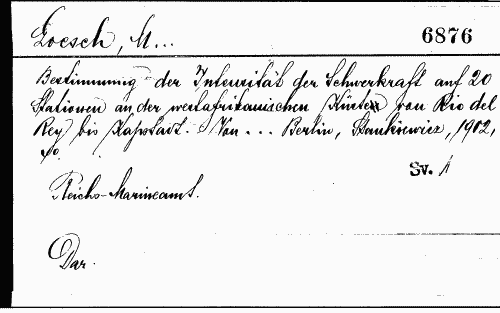 Loesch, M... 6876
Bestimmung der Intensität der Schwerkraft auf 20
Stationen an der westafrikanischen Küste von Rio del
Rey bis Kapstadt. Von ... Berlin, Stankiewicz, 1902,
4o.
Sv. A
Reichs-Marineamt.
Dar.